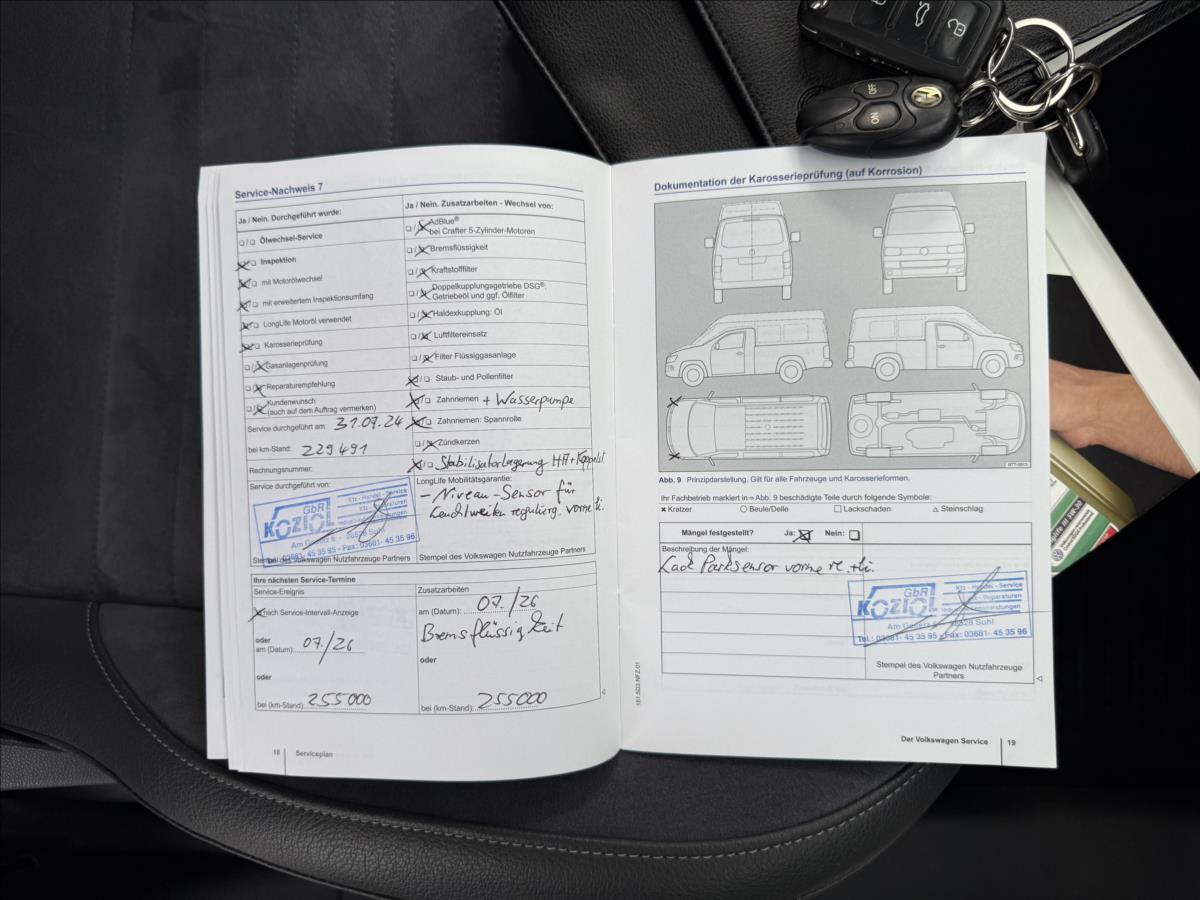 OFF
ON
Service-Nachweis 7
Ja / Nein. Durchgeführt wurde:
Ölwechsel-Service
Inspektion
mit Motorölwechsel
mit erweitertem Inspektionsumfang
LongLife Motoröl verwendet
Karosserieprüfung
Gasanlagenprüfung
Reparaturempfehlung
Kundenwunsch
(auch auf dem Auftrag vermerken)
Service durchgeführt am: 31.07.24
bei km-Stand: 229491
Rechnungsnummer:
Service durchgeführt von:
GbR
KOZIOL
Kfz - Handel - Service
Am 98528 Suhl
03681- 45 35 95 • Fax: 03681- 45 35 96
Stempel des Volkswagen Nutzfahrzeuge Partners
Ja / Nein. Zusatzarbeiten - Wechsel von:
AdBlue®
bei Crafter 5-Zylinder-Motoren
Bremsflüssigkeit
Kraftstofffilter
Doppelkupplungsgetriebe DSG®:
Getriebeöl und ggf. Ölfilter
Haldexkupplung: Öl
Luftfiltereinsatz
Filter Flüssiggasanlage
Staub- und Pollenfilter
Zahnriemen + Wasserpumpe
Zahnriemen: Spannrolle
Zündkerzen
Stabilisatorlagerung
LongLife Mobilitätsgarantie:
- Niveau-Sensor für
Leuchtweitenregulierg. vorne li.
Stempel des Volkswagen Nutzfahrzeuge Partners
Ihre nächsten Service-Termine
Service-Ereignis
nach Service-Intervall-Anzeige
oder
am (Datum): 07./26
oder
bei (km-Stand): 255000
Zusatzarbeiten
am (Datum): 07./26
Bremsflüssigkeit
oder
bei (km-Stand): 255000
18 Serviceplan
Dokumentation der Karosserieprüfung (auf Korrosion)
B7T-0013
Abb. 9 Prinzipdarstellung. Gilt für alle Fahrzeuge und Karosserieformen.
Ihr Fachbetrieb markiert in ⇒ Abb. 9 beschädigte Teile durch folgende Symbole:
× Kratzer ○ Beule/Delle □ Lackschaden △ Steinschlag
Mängel festgestellt? Ja: Nein:
Beschreibung der Mängel:
Lack Parksensor vorne re.+li.
GbR
KOZIOL
Kfz - Handel - Service
Am 98529 Suhl
Tel.: 03681- 45 35 95 • Fax: 03681- 45 35 96
Stempel des Volkswagen Nutzfahrzeuge
Partners
151.5D3.NFZ.01
Der Volkswagen Service 19